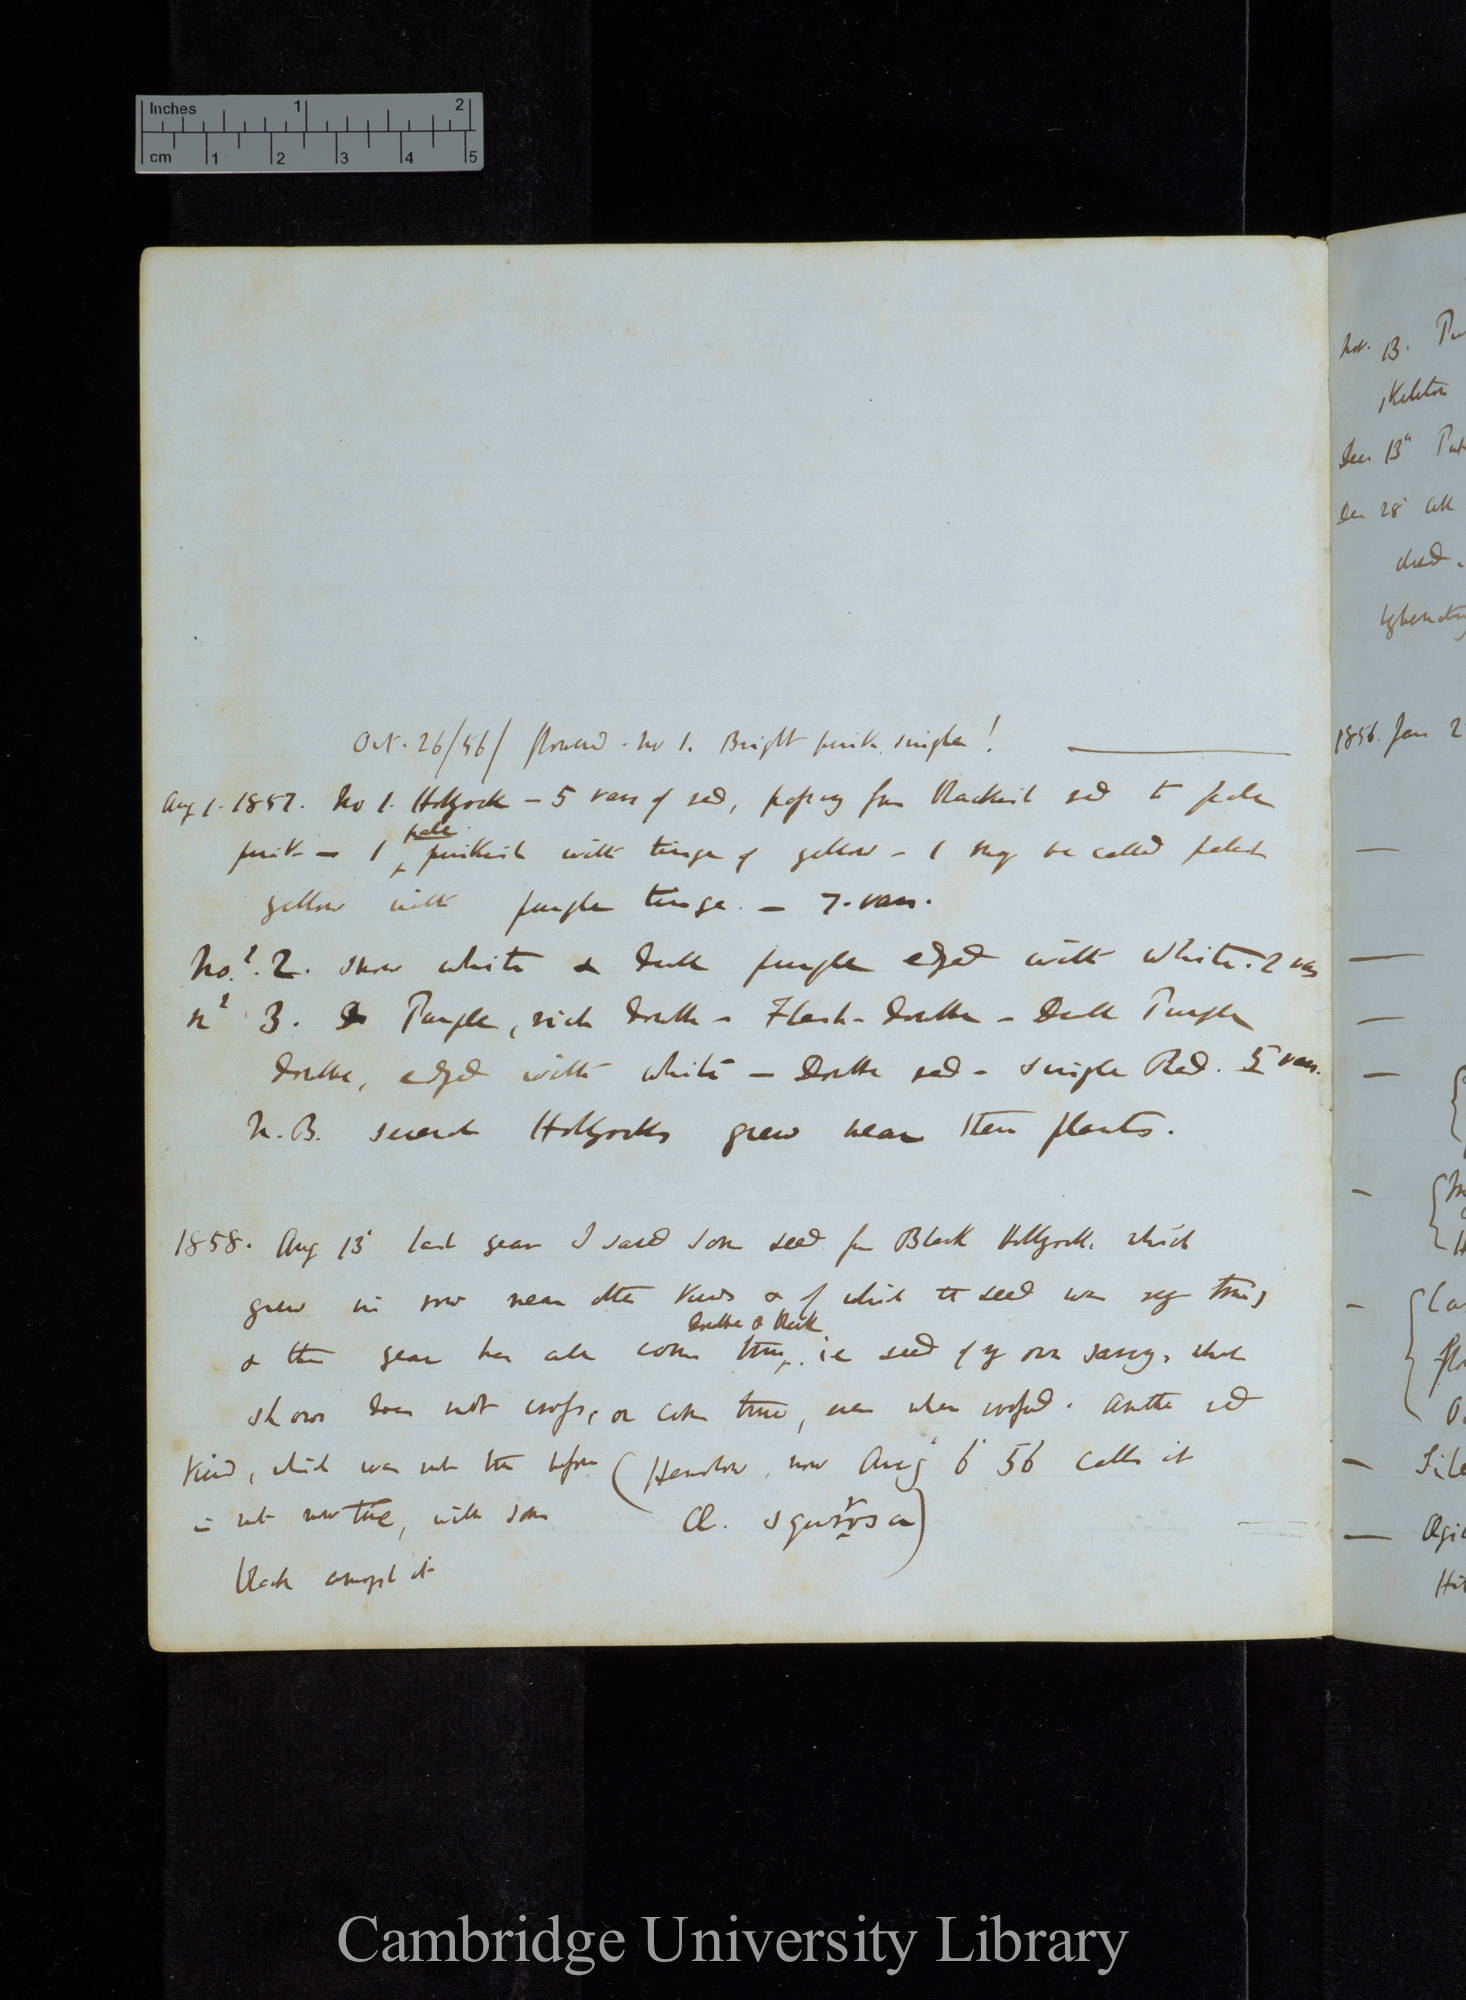 Inches 1 2
cm 1 2 3 4 5
Oct. 26/56/ flowered. No 1. Bright pink, single!
Aug 1. 1857. No 1. Hollyock — 5 vars of red, passing from blackish red to pale
pink — 1 pale pinkish with tinge of yellow — 1 may be called palest
yellow with purple tinge. — 7. vars.
No. 2. Snow white & dull purple edged with white. 2 vars
No 3. Purple, rich double — Flesh-double — Dull Purple
double, edged with white — Double red — single Red. 5 vars.
N.B. several Hollyocks grew near these plants.
1858. Aug 13 last year I saved some seed from Black Hollyock, which
grew in row near other kinds & of which the seed was true,
& this year has all come true, double & black ie seed of my own saving, which
shows does not cross, or come true, even when crossed. Another red
kind, which was not true before (Henslow, now Aug 6 56 calls it
is not now true, with some Æ. squarrosa)
black amongst it
Nov. 13.
skeleton
Dec 13
Dec 28 all
died.
1856. Jan 2
Cambridge University Library